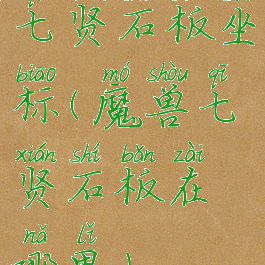 七贤石板坐
biāo mó shòu qī
标(魔兽七
xián shí bǎn zài
贤石板在
nǎ lǐ
哪里)